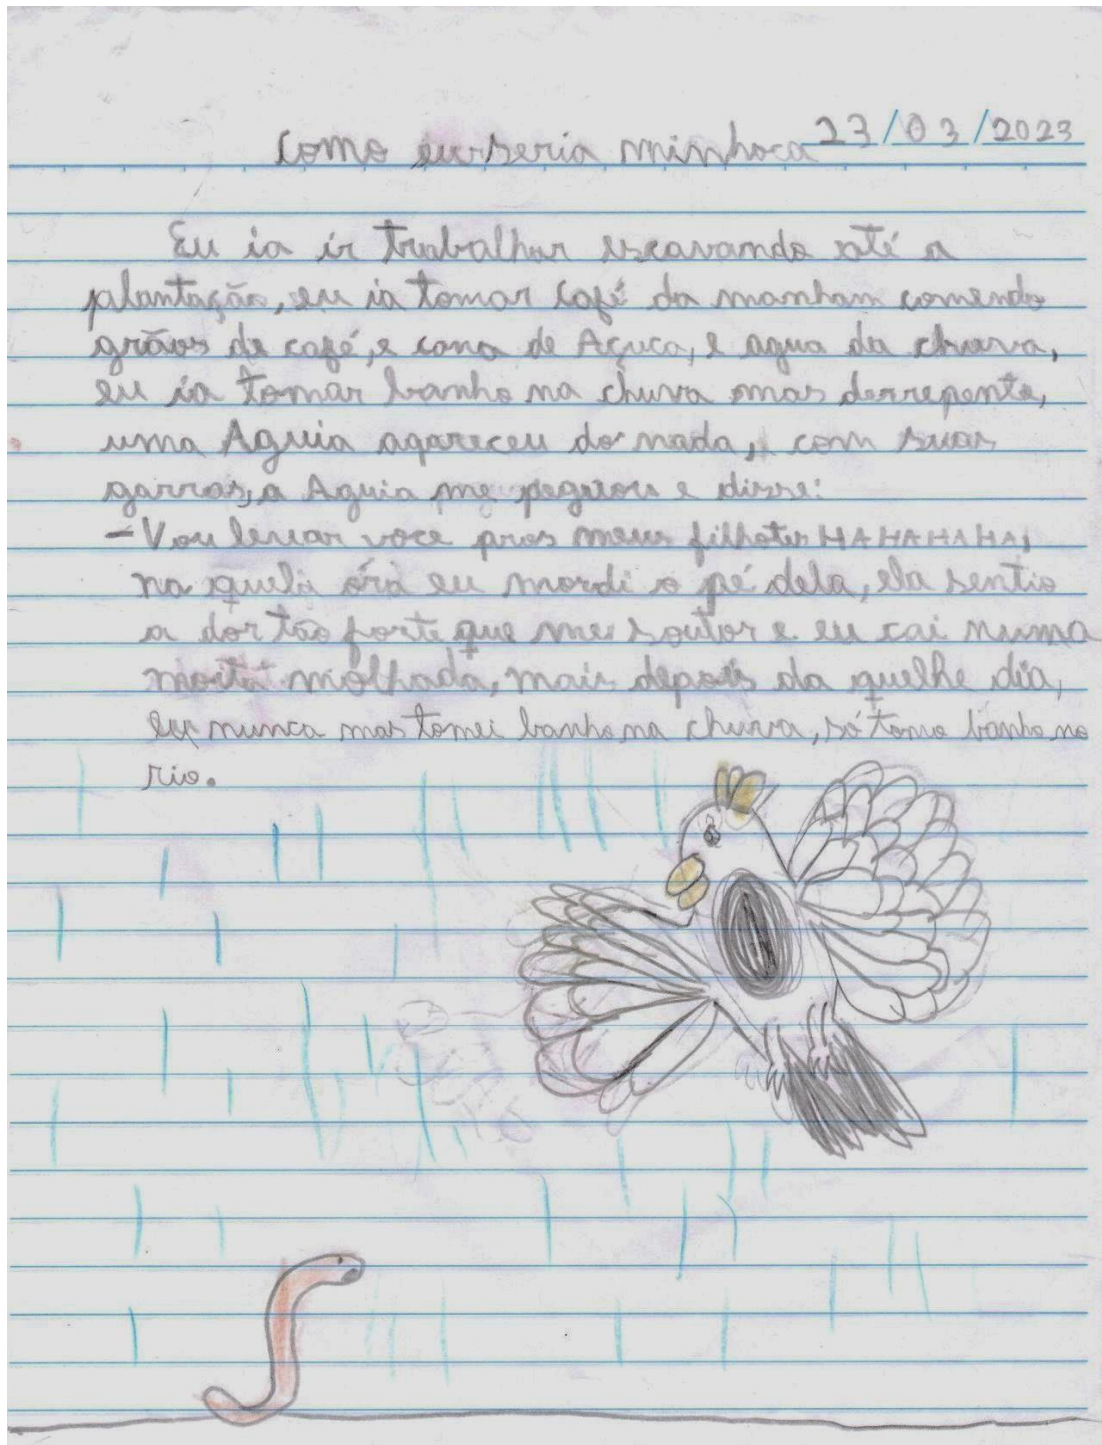 23/03/2023
como eu seria minhoca
Eu ia ir trabalhar escavando até a
plantação, eu ia tomar café da manham comendo
grãos de café, e cana de Açuca, e agua da chuva,
eu ia tomar banho na chuva mas derrepente,
uma Aguia apareceu do nada, com suas
garras, a Aguia me pegou e disse:
- Vou levar voce pros meus filhotes HAHAHAHA,
na quela óra eu mordi o pé dela, ela sentio
a dor tão forte que me soutor e eu cai numa
molhada, mais depois da quelhe dia,
eu nunca mas tomei banho na chuva, só tomo banho no
rio.